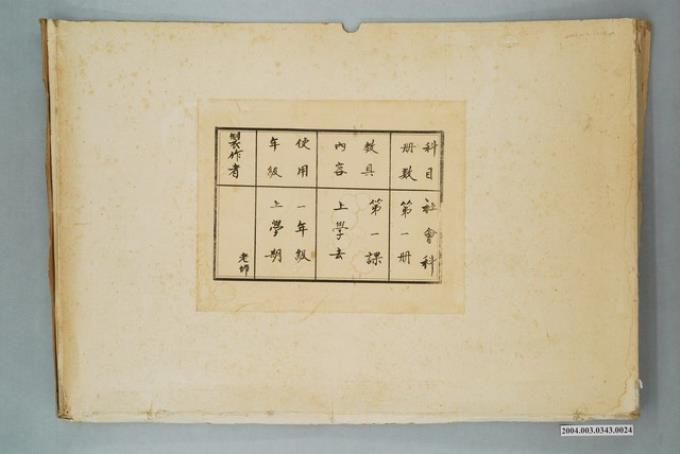 科目 社會科
册数 第一册
教具 第一課
內容 上學去
使用 一年級
年級 上學期
製作者 老師
2004.003.0343.0024